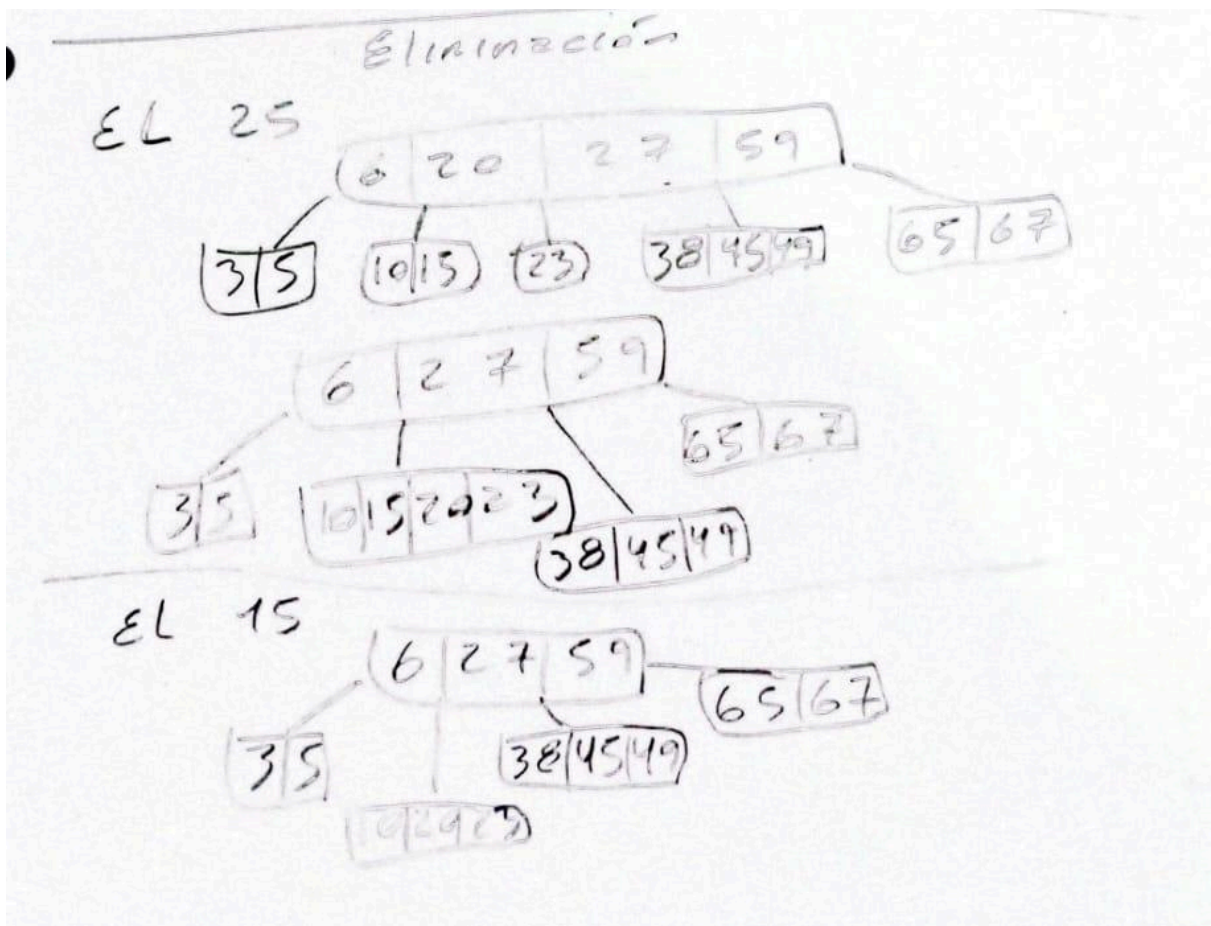 Eliminación
EL 25
6 20 27 59
3 5 10 15 23 38 45 49 65 67
6 27 59
65 67
3 5 10 15 20 23
38 45 49
EL 15
6 27 59
65 67
3 5 38 45 49
10 20 23